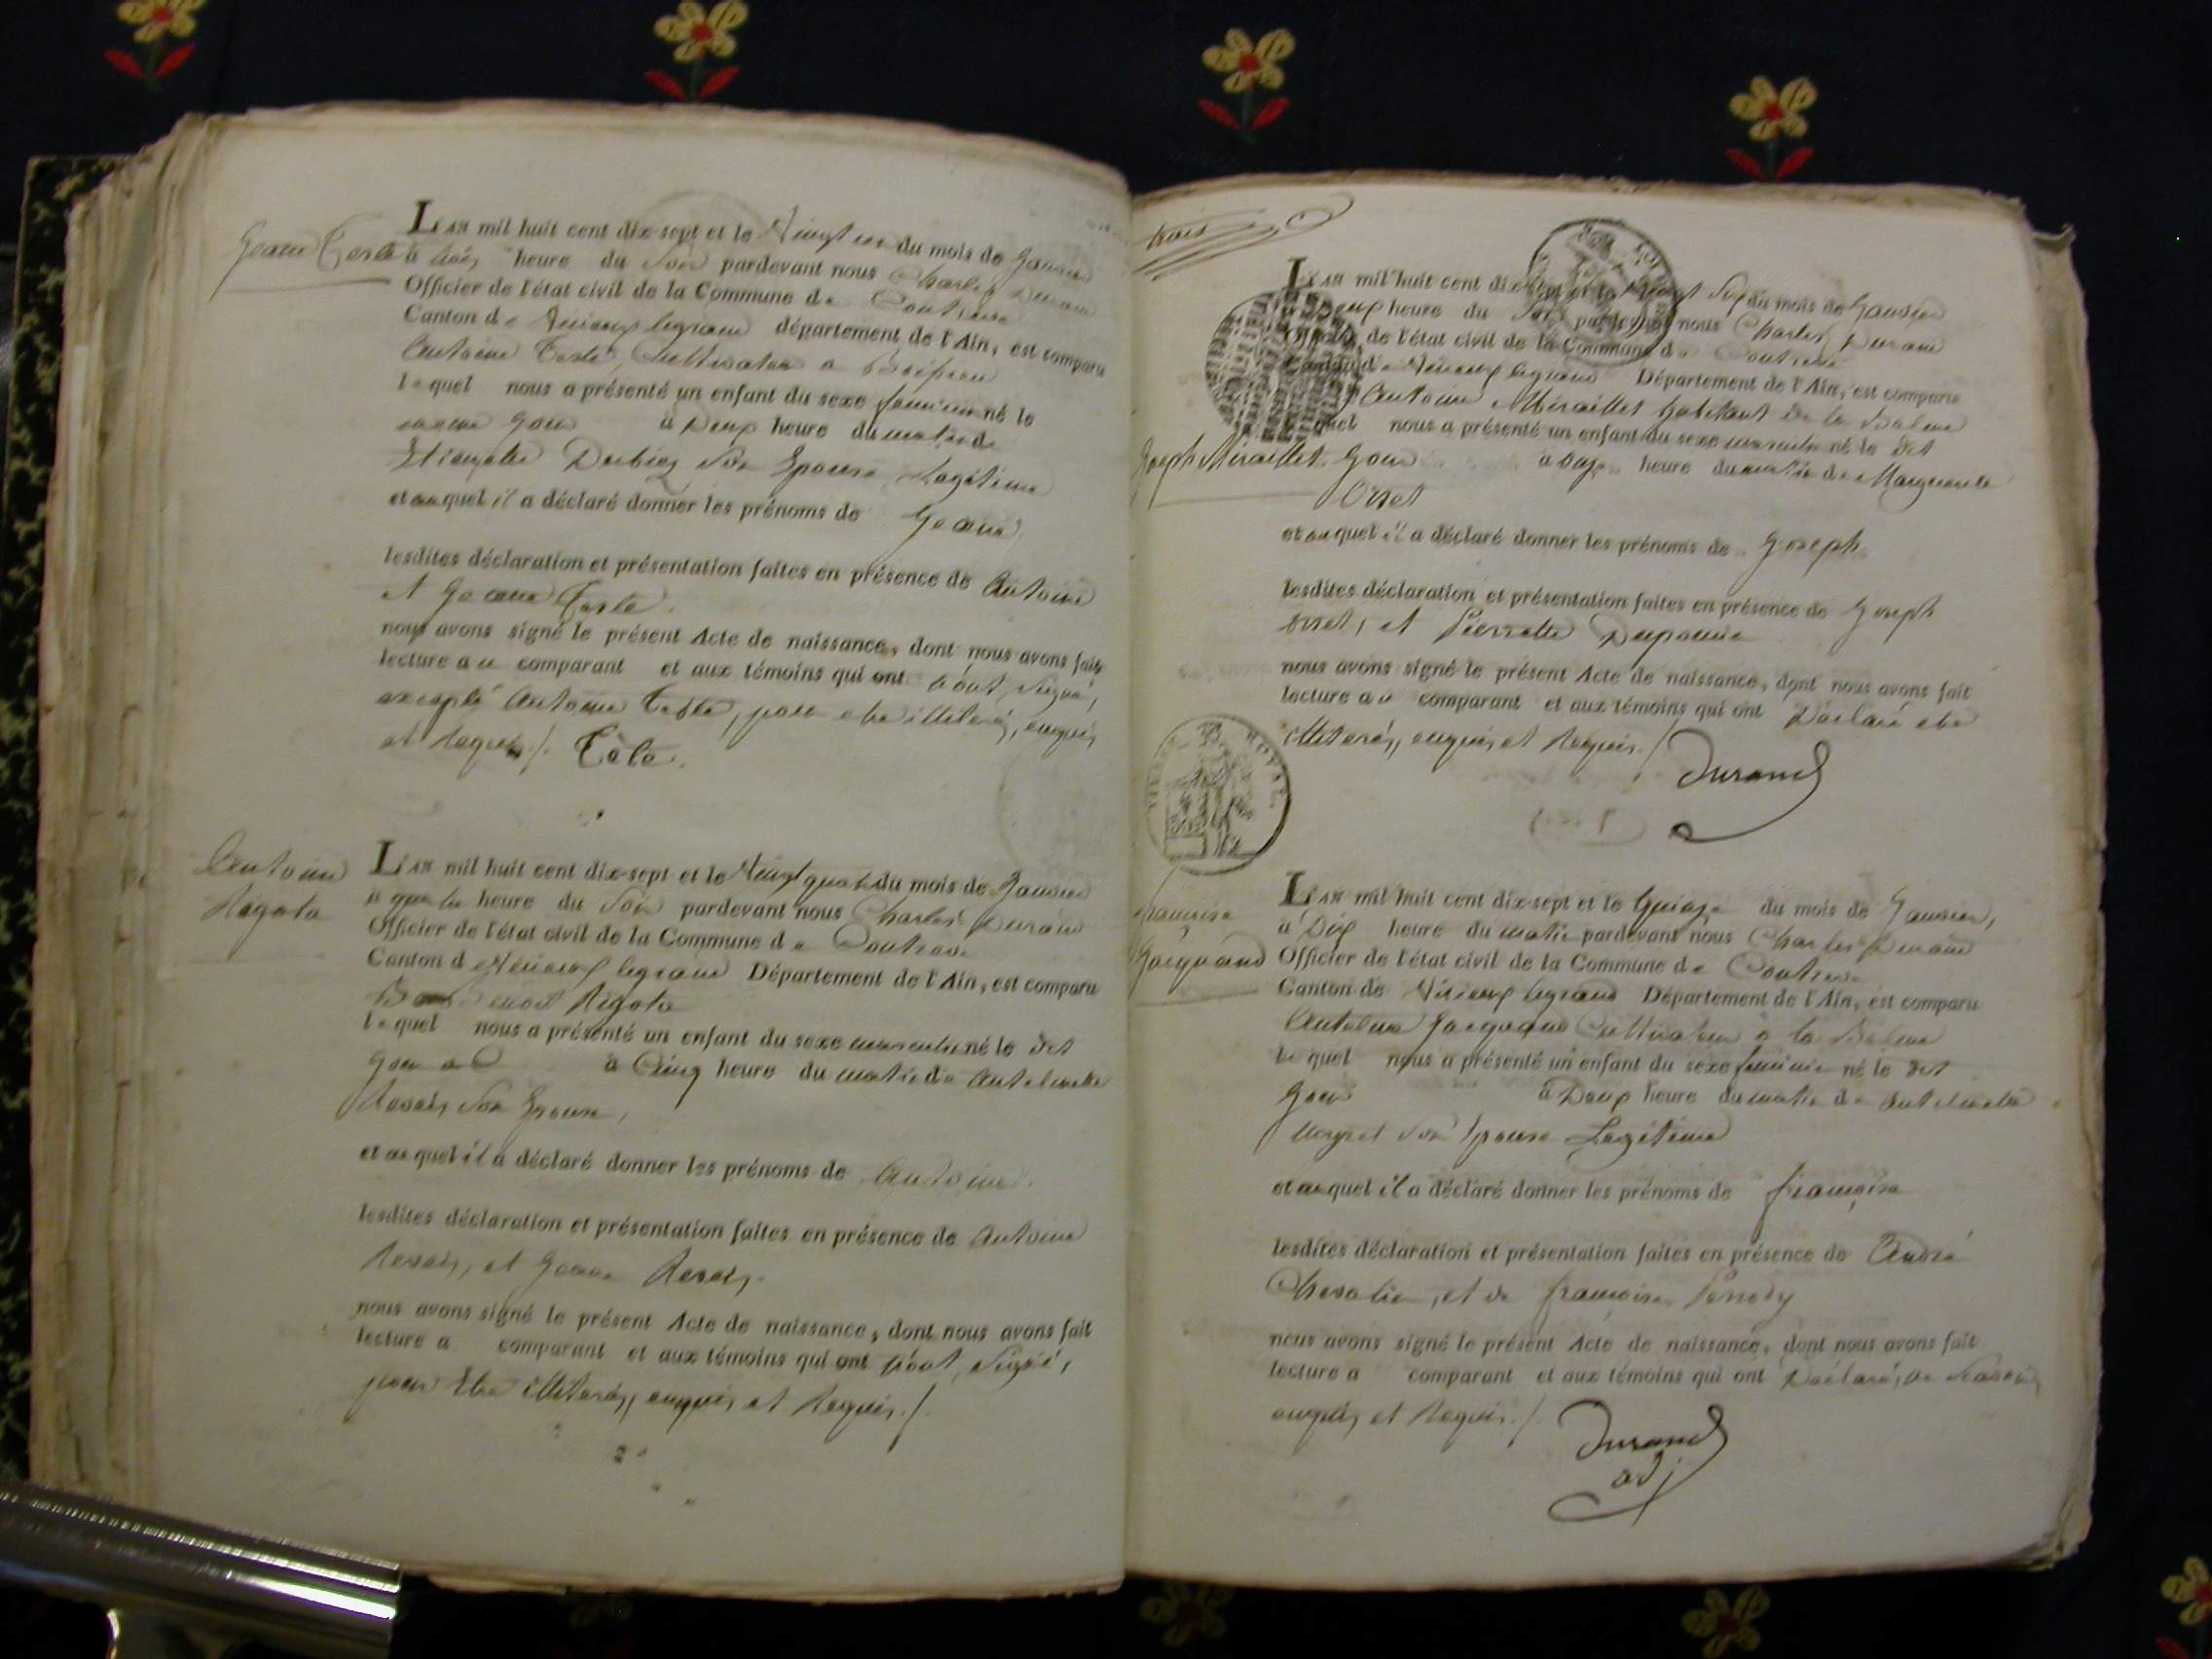 Jeanne Teste
L'AN mil huit cent dix-sept et le Vingt un du mois de Janvier
à trois heure du Soir pardevant nous Charles Durand
Officier de l'état civil de la Commune de Contrevo
Canton de Virieux legrand département de l'Ain, est comparu
Antoine Teste, Cultivateur a
lequel nous a présenté un enfant du sexe feminin né le
meme Jour à Deux heure du matin de
Etiennette Dubiez Son Epouse Legitime
et auquel il a déclaré donner les prénoms de Jeanne
lesdites déclaration et présentation faites en présence de Antoine
et Jeanne Teste.
nous avons signé le présent Acte de naissance, dont nous avons fait
lecture au comparant et aux témoins qui ont Signé,
excepté Antoine Teste, pour etre illiteré, enquis
et Requis ./. Tete.
Antoine
Rigota
L'AN mil huit cent dix-sept et le Vingt quatr du mois de Janvier
a quatre heure du Soir pardevant nous Charles Durand
Officier de l'état civil de la Commune de Contrevo
Canton de Virieux legrand Département de l'Ain, est comparu
Benoit Rigota
lequel nous a présenté un enfant du sexe masculin né le dit
Jour à Cinq heure du matin de Antelmette
Son Epouse,
et auquel il a déclaré donner les prénoms de Antoine.
lesdites déclaration et présentation faites en présence de Antoine
et Jeanne
nous avons signé le présent Acte de naissance, dont nous avons fait
lecture a comparant et aux témoins qui ont Signé,
pour Etre illiterés, enquis et Requis ./.
trois
Joseph Miraillet
L'AN mil huit cent dix-sept et le Vingt Six du mois de Janvier
Deux heure du Soir pardevant nous Charles Durand
Officier de l'état civil de la Commune de Contrevo
Canton de Virieux legrand Département de l'Ain, est comparu
Antoine Miraillet habitant de la Balme
lequel nous a présenté un enfant du sexe masculin né le dit
Jour à onze heure du matin de Marguerite
Orset
et auquel il a déclaré donner les prénoms de Joseph
lesdites déclaration et présentation faites en présence de Joseph
orset, et Pierrette
nous avons signé le présent Acte de naissance, dont nous avons fait
lecture au comparant et aux témoins qui ont Déclaré etre
illiterés, enquis et Requis ./.
Durand
françoise
Jacquand
L'AN mil huit cent dix-sept et le Quinze du mois de Janvier,
à Dix heure du matin pardevant nous Charles Durand
Officier de l'état civil de la Commune de Contrevo
Canton de Virieux legrand Département de l'Ain, est comparu
Antelme Jacquand Cultivateur a la Balme
lequel nous a présenté un enfant du sexe feminin né le dit
Jour à Deux heure du matin de Antelmette
Son Epouse Legitime
et auquel il a déclaré donner les prénoms de françoise
lesdites déclaration et présentation faites en présence de André
Chevalier, et de françoise
nous avons signé le présent Acte de naissance, dont nous avons fait
lecture a comparant et aux témoins qui ont Déclaré, ne Savoir,
enquis et Requis ./.
Durand
adj